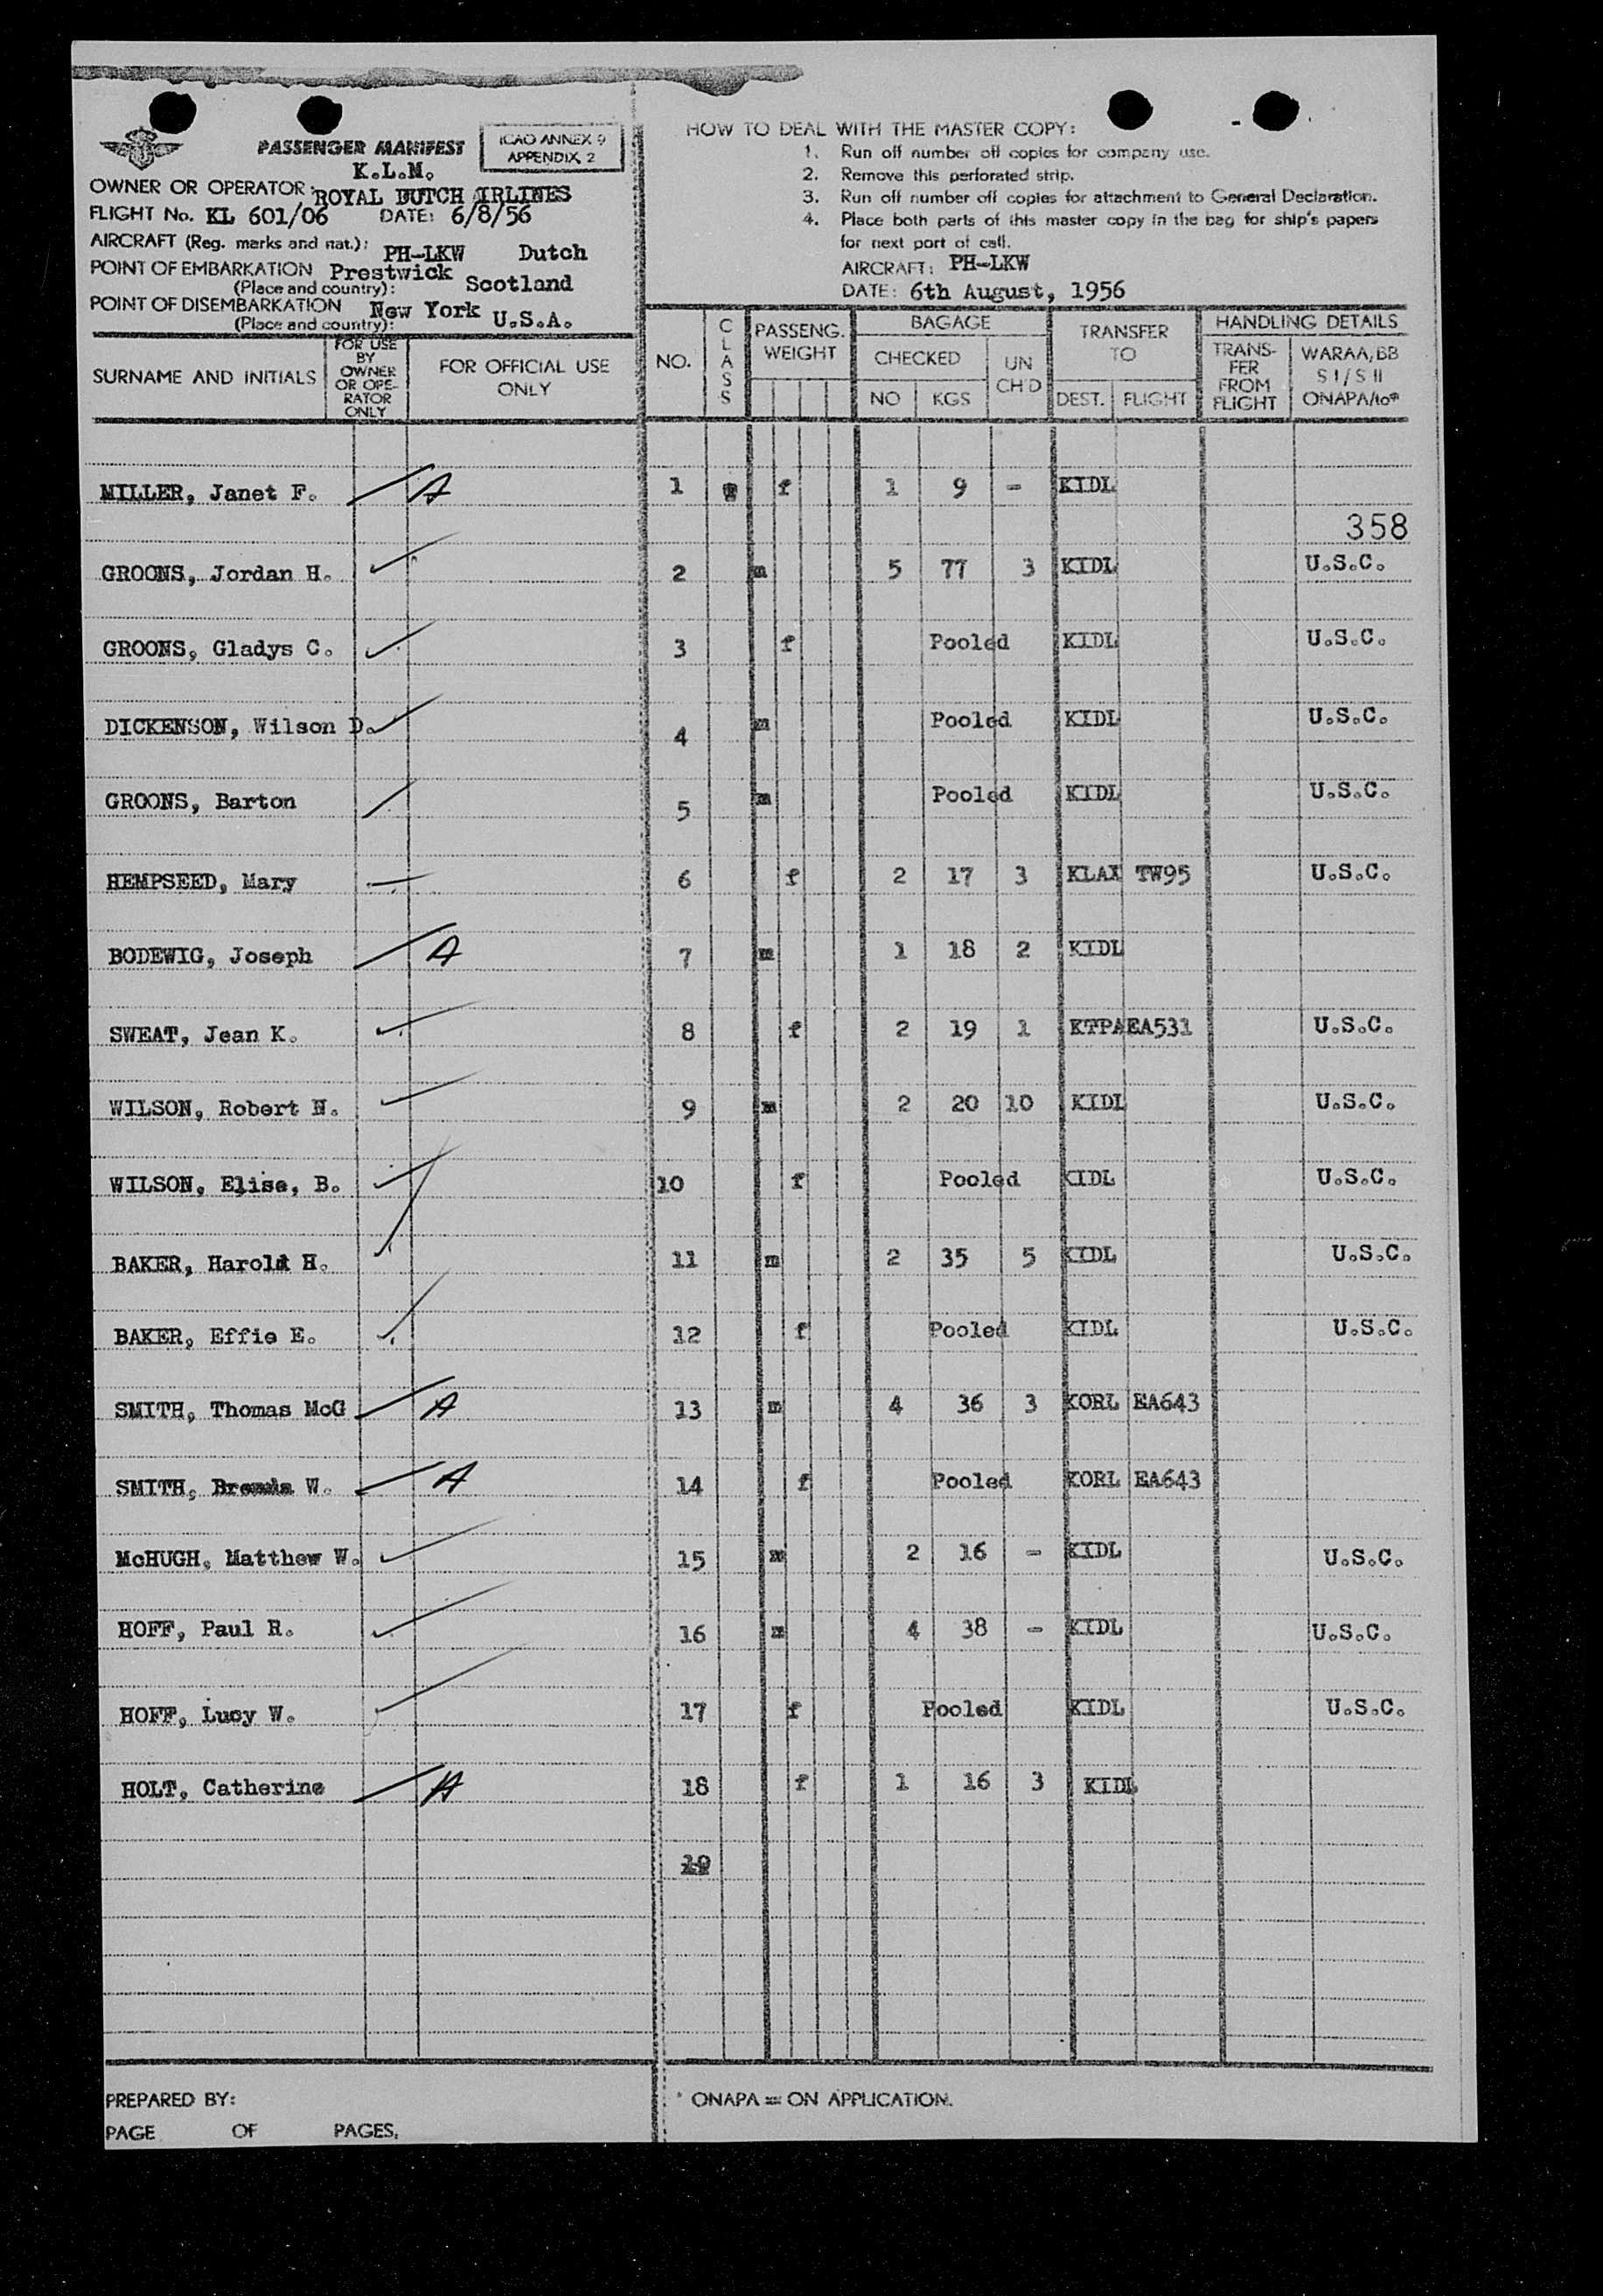 PASSENGER MANIFEST
ICAO ANNEX 9
APPENDIX 2
K.L.M.
OWNER OR OPERATOR: ROYAL DUTCH AIRLINES
FLIGHT No. KL 601/06 DATE: 6/8/56
AIRCRAFT (Reg. marks and nat.): PH-LKW Dutch
POINT OF EMBARKATION Prestwick Scotland
(Place and country):
POINT OF DISEMBARKATION New York U.S.A.
(Place and country):
HOW TO DEAL WITH THE MASTER COPY:
1. Run off number off copies for company use.
2. Remove this perforated strip.
3. Run off number off copies for attachment to General Declaration.
4. Place both parts of this master copy in the bag for ship's papers
for next port of call.
AIRCRAFT: PH-LKW
DATE: 6th August, 1956
SURNAME AND INITIALS
FOR USE BY OWNER OR OPE-RATOR ONLY
FOR OFFICIAL USE ONLY
NO.
CLASS
PASSENG. WEIGHT
BAGAGE
CHECKED
NO KGS
UN CH'D
TRANSFER TO
DEST. FLIGHT
HANDLING DETAILS
TRANS-FER FROM FLIGHT
WARAA, BB S I / S II ONAPA/to*
MILLER, Janet F. A 1 f 1 9 - KIDL
358
GROONS, Jordan H. 2 m 5 77 3 KIDL U.S.C.
GROONS, Gladys C. 3 f Pooled KIDL U.S.C.
DICKENSON, Wilson D. 4 m Pooled KIDL U.S.C.
GROONS, Barton 5 m Pooled KIDL U.S.C.
HEMPSEED, Mary 6 f 2 17 3 KLAX TW95 U.S.C.
BODEWIG, Joseph A 7 m 1 18 2 KIDL
SWEAT, Jean K. 8 f 2 19 1 KTPA EA531 U.S.C.
WILSON, Robert N. 9 m 2 20 10 KIDL U.S.C.
WILSON, Elise, B. 10 f Pooled KIDL U.S.C.
BAKER, Harold H. 11 m 2 35 5 KIDL U.S.C.
BAKER, Effie E. 12 f Pooled KIDL U.S.C.
SMITH, Thomas McG A 13 m 4 36 3 KORL EA643
SMITH, Brenda W. A 14 f Pooled KORL EA643
McHUGH, Matthew W. 15 m 2 16 - KIDL U.S.C.
HOFF, Paul R. 16 m 4 38 - KIDL U.S.C.
HOFF, Lucy W. 17 f Pooled KIDL U.S.C.
HOLT, Catherine A 18 f 1 16 3 KIDL
19
PREPARED BY:
PAGE OF PAGES.
* ONAPA = ON APPLICATION.